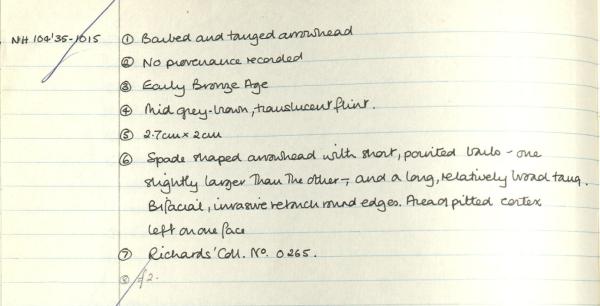 NH 104'35-1015 ① Barbed and tanged arrowhead
② No provenance recorded
③ Early Bronze Age
④ Mid grey-brown, translucent flint.
⑤ 2.7cm x 2cm
⑥ Spade shaped arrowhead with short, pointed barbs - one
slightly larger than the other -, and a long, relatively broad tang.
Bifacial, invasive retouch round edges. Area of pitted cortex
left on one face
⑦ Richards' Coll. No. 0265.
⑧ £2.